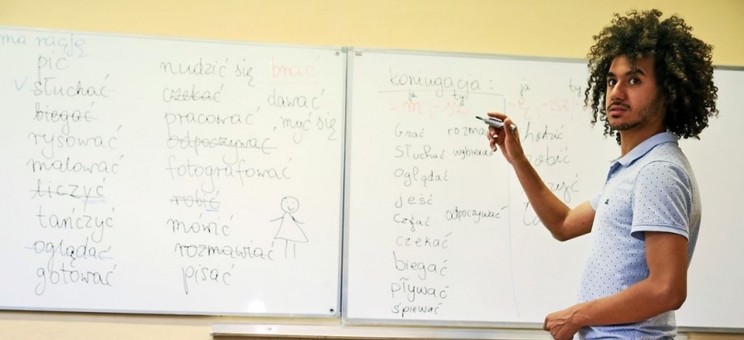 ma rację
pić
słuchać
biegać
rysować
malować
liczyć
tańczyć
oglądać
gotować
nudzić się brać
czekać dawać
pracować myć się
odpoczywać
fotografować
robić
mówić
rozmawiać
pisać
koniugacja:
ja ty
-m -sz
ja ty
Grać
słuchać
oglądać
jeść
czytać odpoczywać
czekać
biegać
pływać
śpiewać